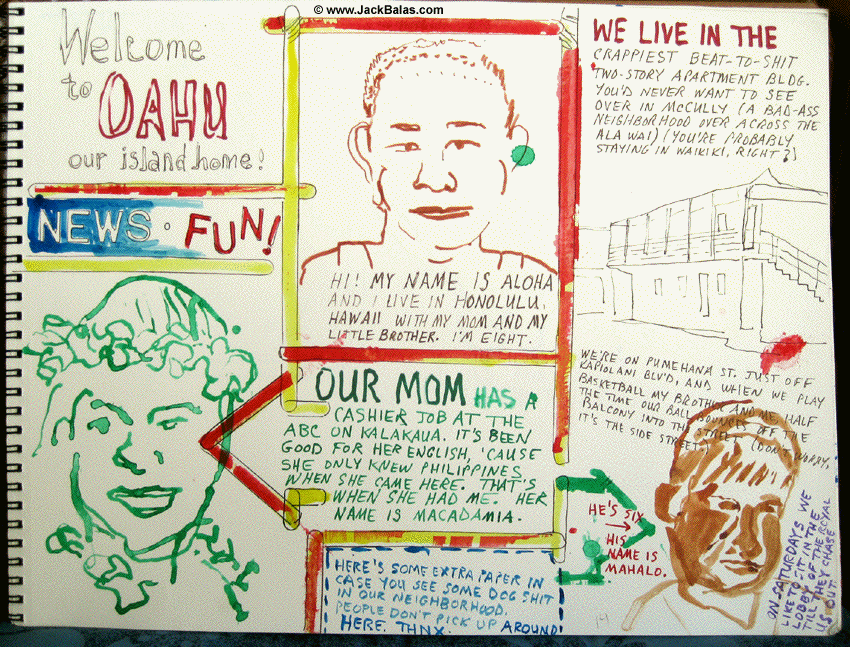 © www.JackBalas.com
Welcome
to OAHU
our island home!
NEWS · FUN!
HI! MY NAME IS ALOHA
AND I LIVE IN HONOLULU,
HAWAII WITH MY MOM AND MY
LITTLE BROTHER. I'M EIGHT.
OUR MOM HAS A
CASHIER JOB AT THE
ABC ON KALAKAUA. IT'S BEEN
GOOD FOR HER ENGLISH, 'CAUSE
SHE ONLY KNEW PHILIPPINES
WHEN SHE CAME HERE. THAT'S
WHEN SHE HAD ME. HER
NAME IS MACADAMIA.
HERE'S SOME EXTRA PAPER IN
CASE YOU SEE SOME DOG SHIT
IN OUR NEIGHBORHOOD.
PEOPLE DON'T PICK UP AROUND
HERE. THNX.
WE LIVE IN THE
CRAPPIEST BEAT-TO-SHIT
TWO-STORY APARTMENT BLDG.
YOU'D NEVER WANT TO SEE
OVER IN McCULLY (A BAD-ASS
NEIGHBORHOOD OVER ACROSS THE
ALA WAI) (YOU'RE PROBABLY
STAYING IN WAIKIKI, RIGHT?)
WE'RE ON PUMEHANA ST. JUST OFF
KAPIOLANI BLV'D, AND WHEN WE PLAY
BASKETBALL MY BROTHER AND ME, HALF
THE TIME OUR BALL BOUNCES OFF THE
BALCONY INTO THE STREET. (DON'T WORRY,
IT'S THE SIDE STREET.)
HE'S SIX
HIS
NAME IS
MAHALO.
ON SATURDAYS WE
LIKE TO SIT IN THE
LOBBY OF THE ROYAL
TILL THEY CHASE
US OUT